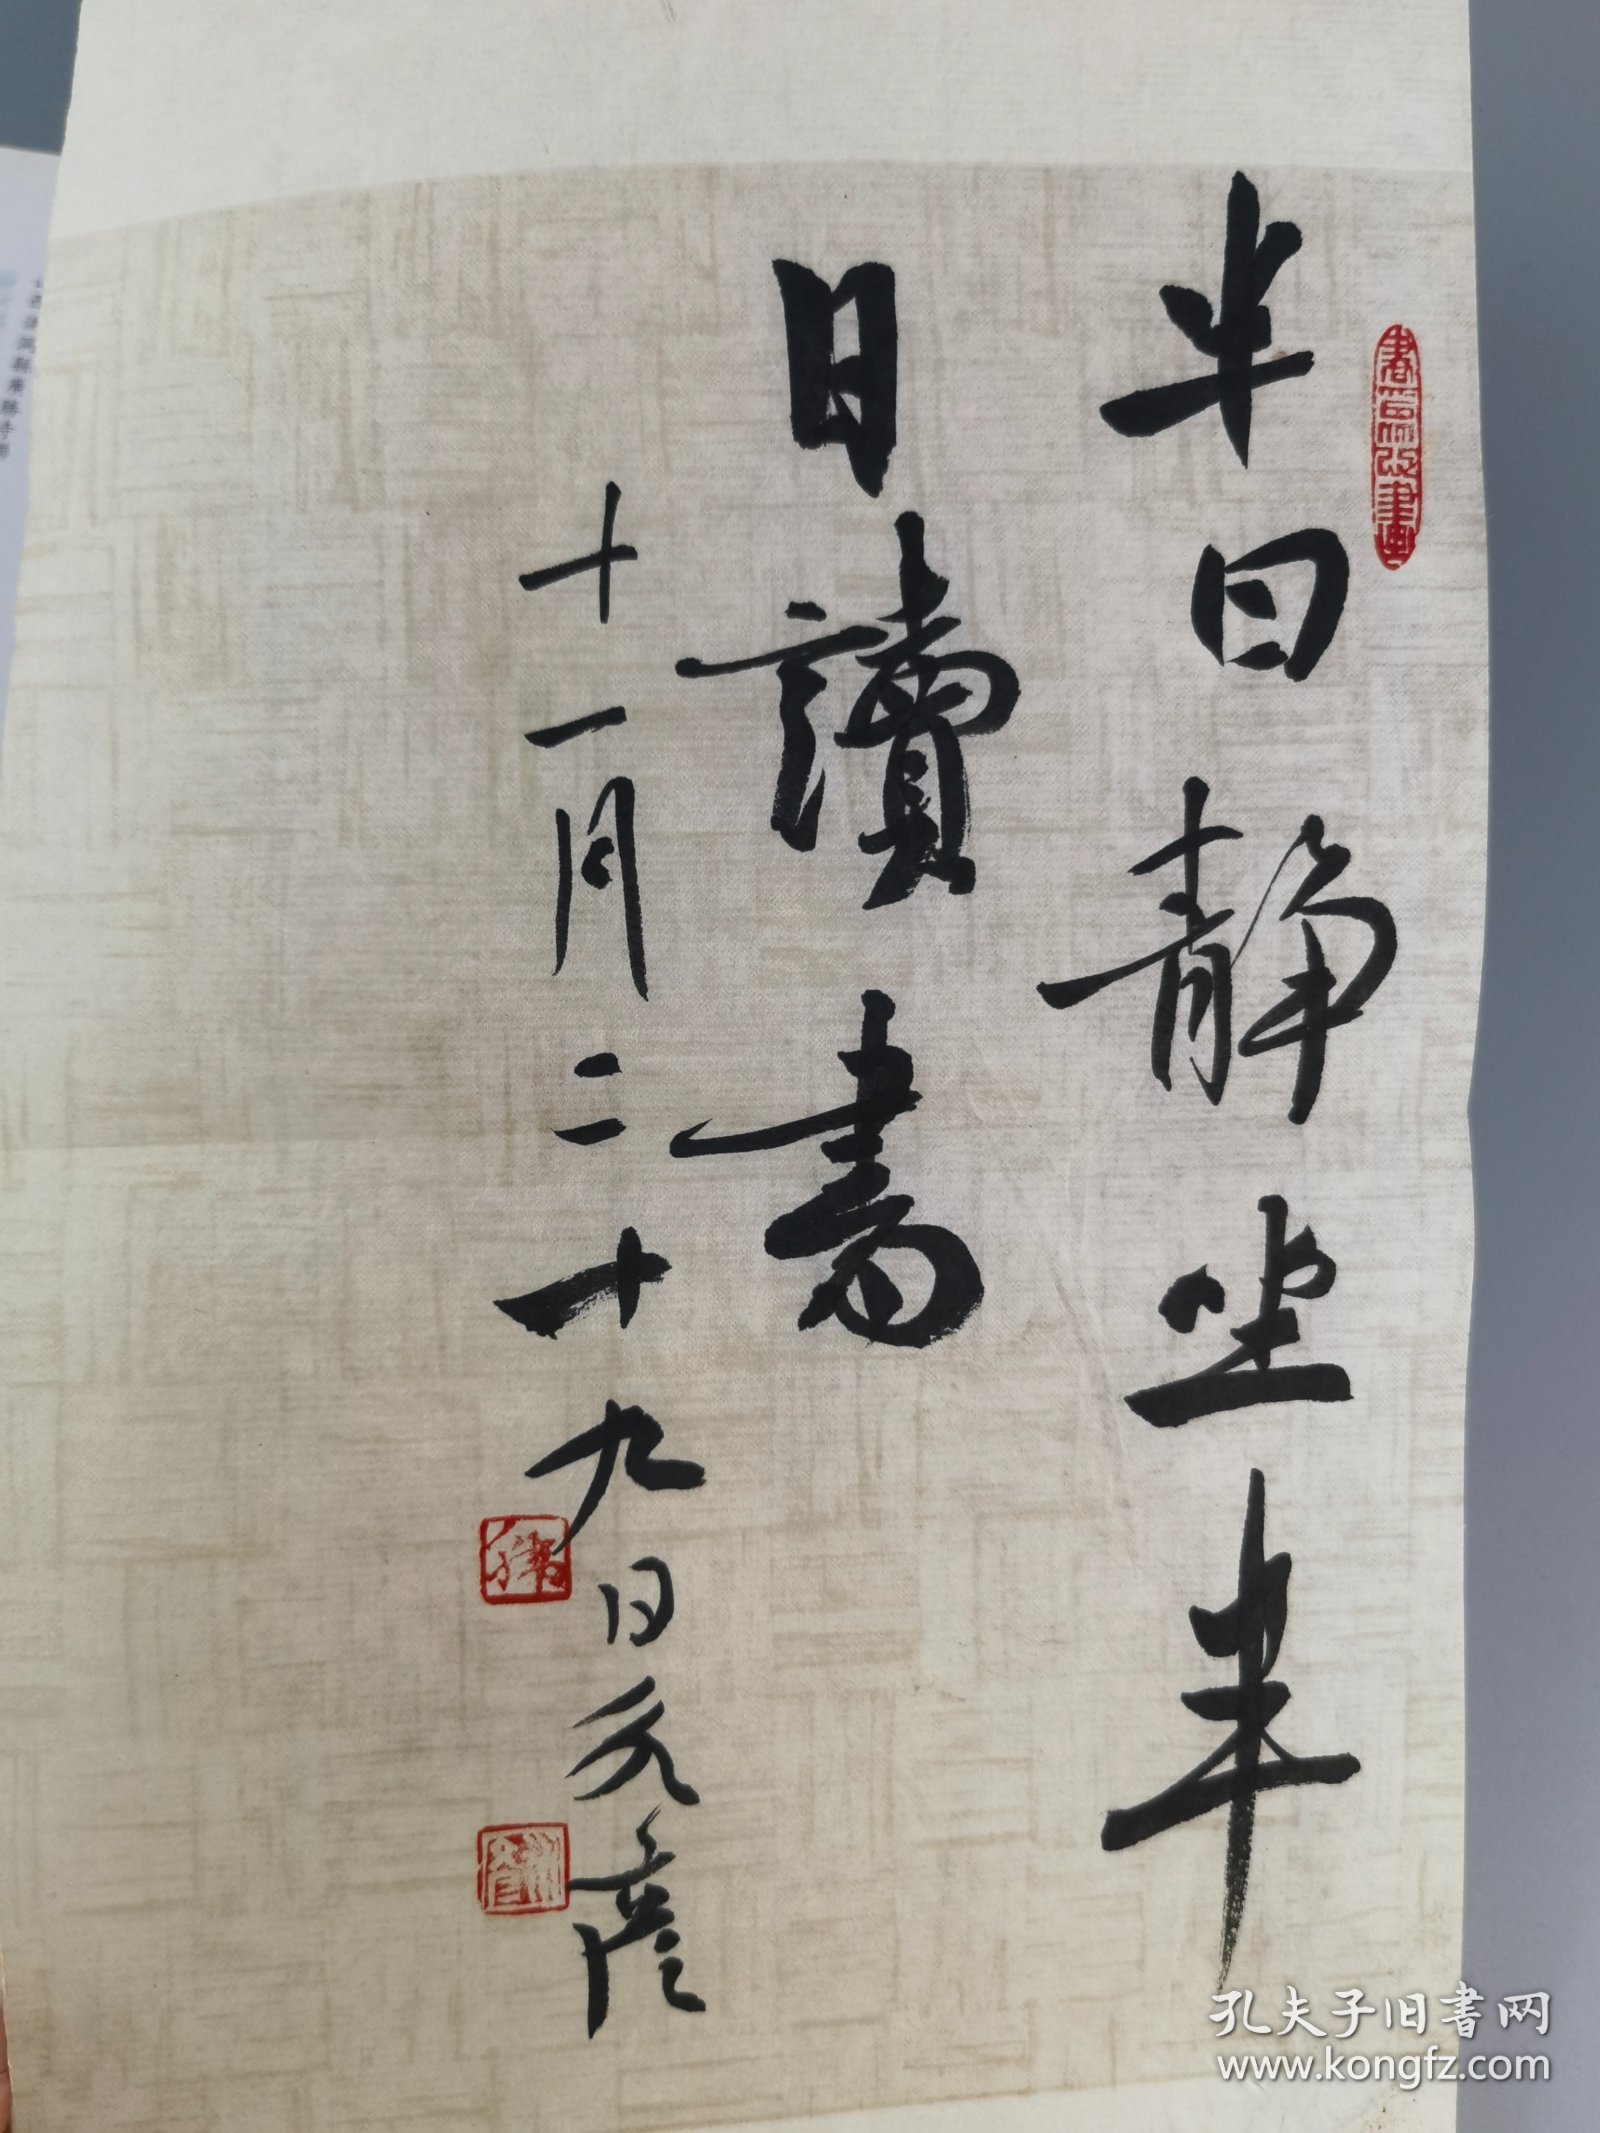 半日静坐半
日讀書
十一月二十九日
孔夫子旧书网
www.kongfz.com